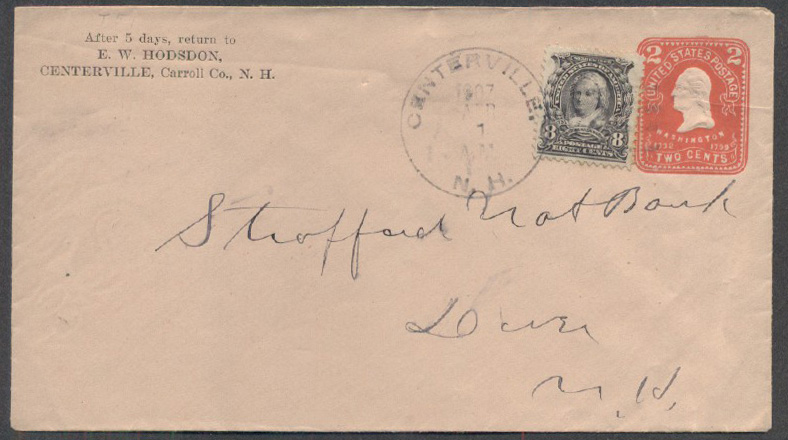 After 5 days, return to
E. W. HODSDON,
CENTERVILLE, Carroll Co., N. H.
CENTERVILLE.
1907
N. H.
8 8
POSTAGE
EIGHT CENTS
2 2
UNITED STATES POSTAGE
WASHINGTON
1732 1799
TWO CENTS
Strafford Nat Bank
Dover
N. H.